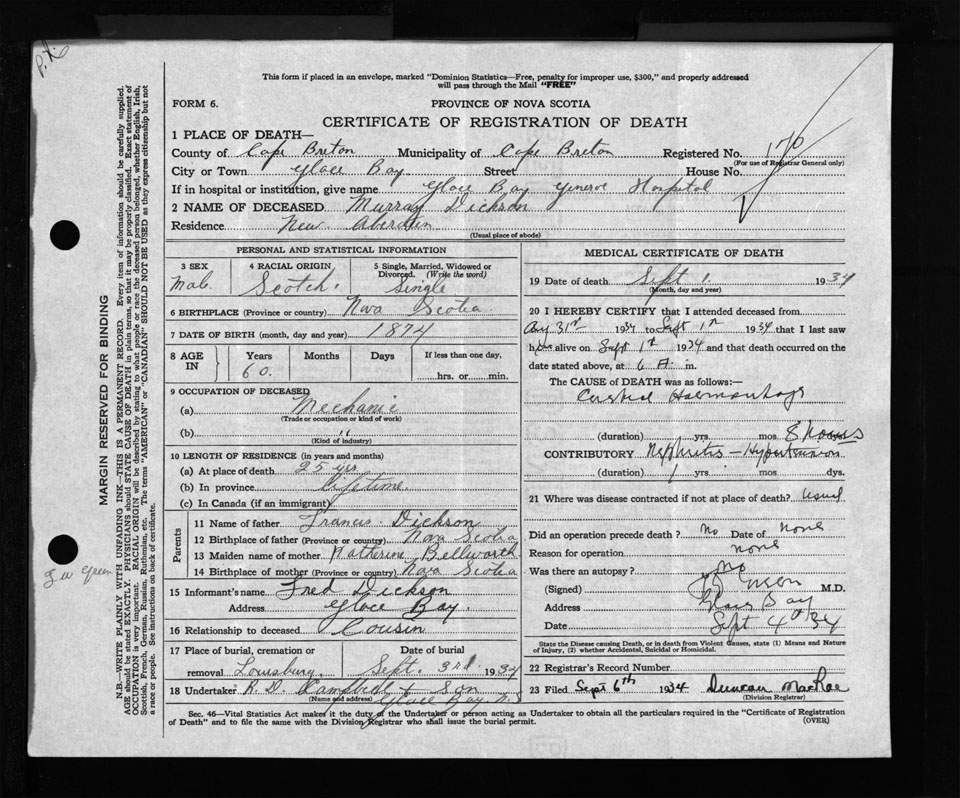 P.X.
This form if placed in an envelope, marked "Dominion Statistics—Free, penalty for improper use, $300," and properly addressed
will pass through the Mail "FREE"
FORM 6.
PROVINCE OF NOVA SCOTIA
CERTIFICATE OF REGISTRATION OF DEATH
1 PLACE OF DEATH—
County of Cape Breton Municipality of Cape Breton Registered No. 170
(For use of Registrar General only)
City or Town Glace Bay Street House No.
If in hospital or institution, give name Glace Bay General Hospital
2 NAME OF DECEASED Murray Dickson
Residence New Aberdeen
(Usual place of abode)
PERSONAL AND STATISTICAL INFORMATION
3 SEX 4 RACIAL ORIGIN 5 Single, Married, Widowed or
Divorced. (Write the word)
Male Scotch. Single
6 BIRTHPLACE (Province or country) Nova Scotia
7 DATE OF BIRTH (month, day and year) 1874
8 AGE IN Years Months Days If less than one day,
60. hrs. or min.
9 OCCUPATION OF DECEASED
(a) Mechanic
(Trade or occupation or kind of work)
(b) "
(Kind of industry)
10 LENGTH OF RESIDENCE (in years and months)
(a) At place of death 25 yrs
(b) In province Lifetime.
(c) In Canada (if an immigrant)
Parents
11 Name of father Francis Dickson
12 Birthplace of father (Province or country) Nova Scotia
13 Maiden name of mother Katherine Bellworth
14 Birthplace of mother (Province or country) Nova Scotia
15 Informant's name Fred Dickson
Address Glace Bay.
16 Relationship to deceased Cousin
17 Place of burial, cremation or Date of burial
removal Louisburg Sept. 3rd 1934
18 Undertaker R. D. Campbell & Son
(Name and address) Glace Bay N.S
MEDICAL CERTIFICATE OF DEATH
19 Date of death Sept 1. 1934
(Month, day and year)
20 I HEREBY CERTIFY that I attended deceased from
Aug 31st 1934 to Sept 1st 1934 that I last saw
him alive on Sept 1st 1934 and that death occurred on the
date stated above, at 6 A. m.
The CAUSE of DEATH was as follows:—
Cerebral Haemorrhage
(duration) yrs. mos 8 hours
CONTRIBUTORY Nephritis — Hypertension
(duration) yrs. mos. dys.
21 Where was disease contracted if not at place of death? usual
Did an operation precede death? no Date of none
Reason for operation none
Was there an autopsy? no
(Signed) M.D.
Address Glace Bay
Date Sept 4th 34
State the Disease causing Death, or in death from Violent Causes, state (1) Means and Nature
of Injury, (2) whether Accidental, Suicidal or Homicidal.
22 Registrar's Record Number
23 Filed Sept 6th 1934 Duncan MacRae
(Division Registrar)
Sec. 46—Vital Statistics Act makes it the duty of the Undertaker or person acting as Undertaker to obtain all the particulars required in the "Certificate of Registration
of Death" and to file the same with the Division Registrar who shall issue the burial permit. (OVER)
MARGIN RESERVED FOR BINDING
N.B.—WRITE PLAINLY WITH UNFADING INK—THIS IS A PERMANENT RECORD. Every item of information should be carefully supplied.
AGE should be stated EXACTLY. PHYSICIANS should STATE CAUSE OF DEATH in plain terms, so that it may be properly classified. Exact statement of
OCCUPATION is very important. RACIAL ORIGIN will be described by stating to what people or race the deceased person belonged, whether English, Irish,
Scottish, French, German, Russian, Ruthenian, etc. The terms "AMERICAN" or "CANADIAN" SHOULD NOT BE USED as they express citizenship but not
a race or people. See instructions on back of certificate.